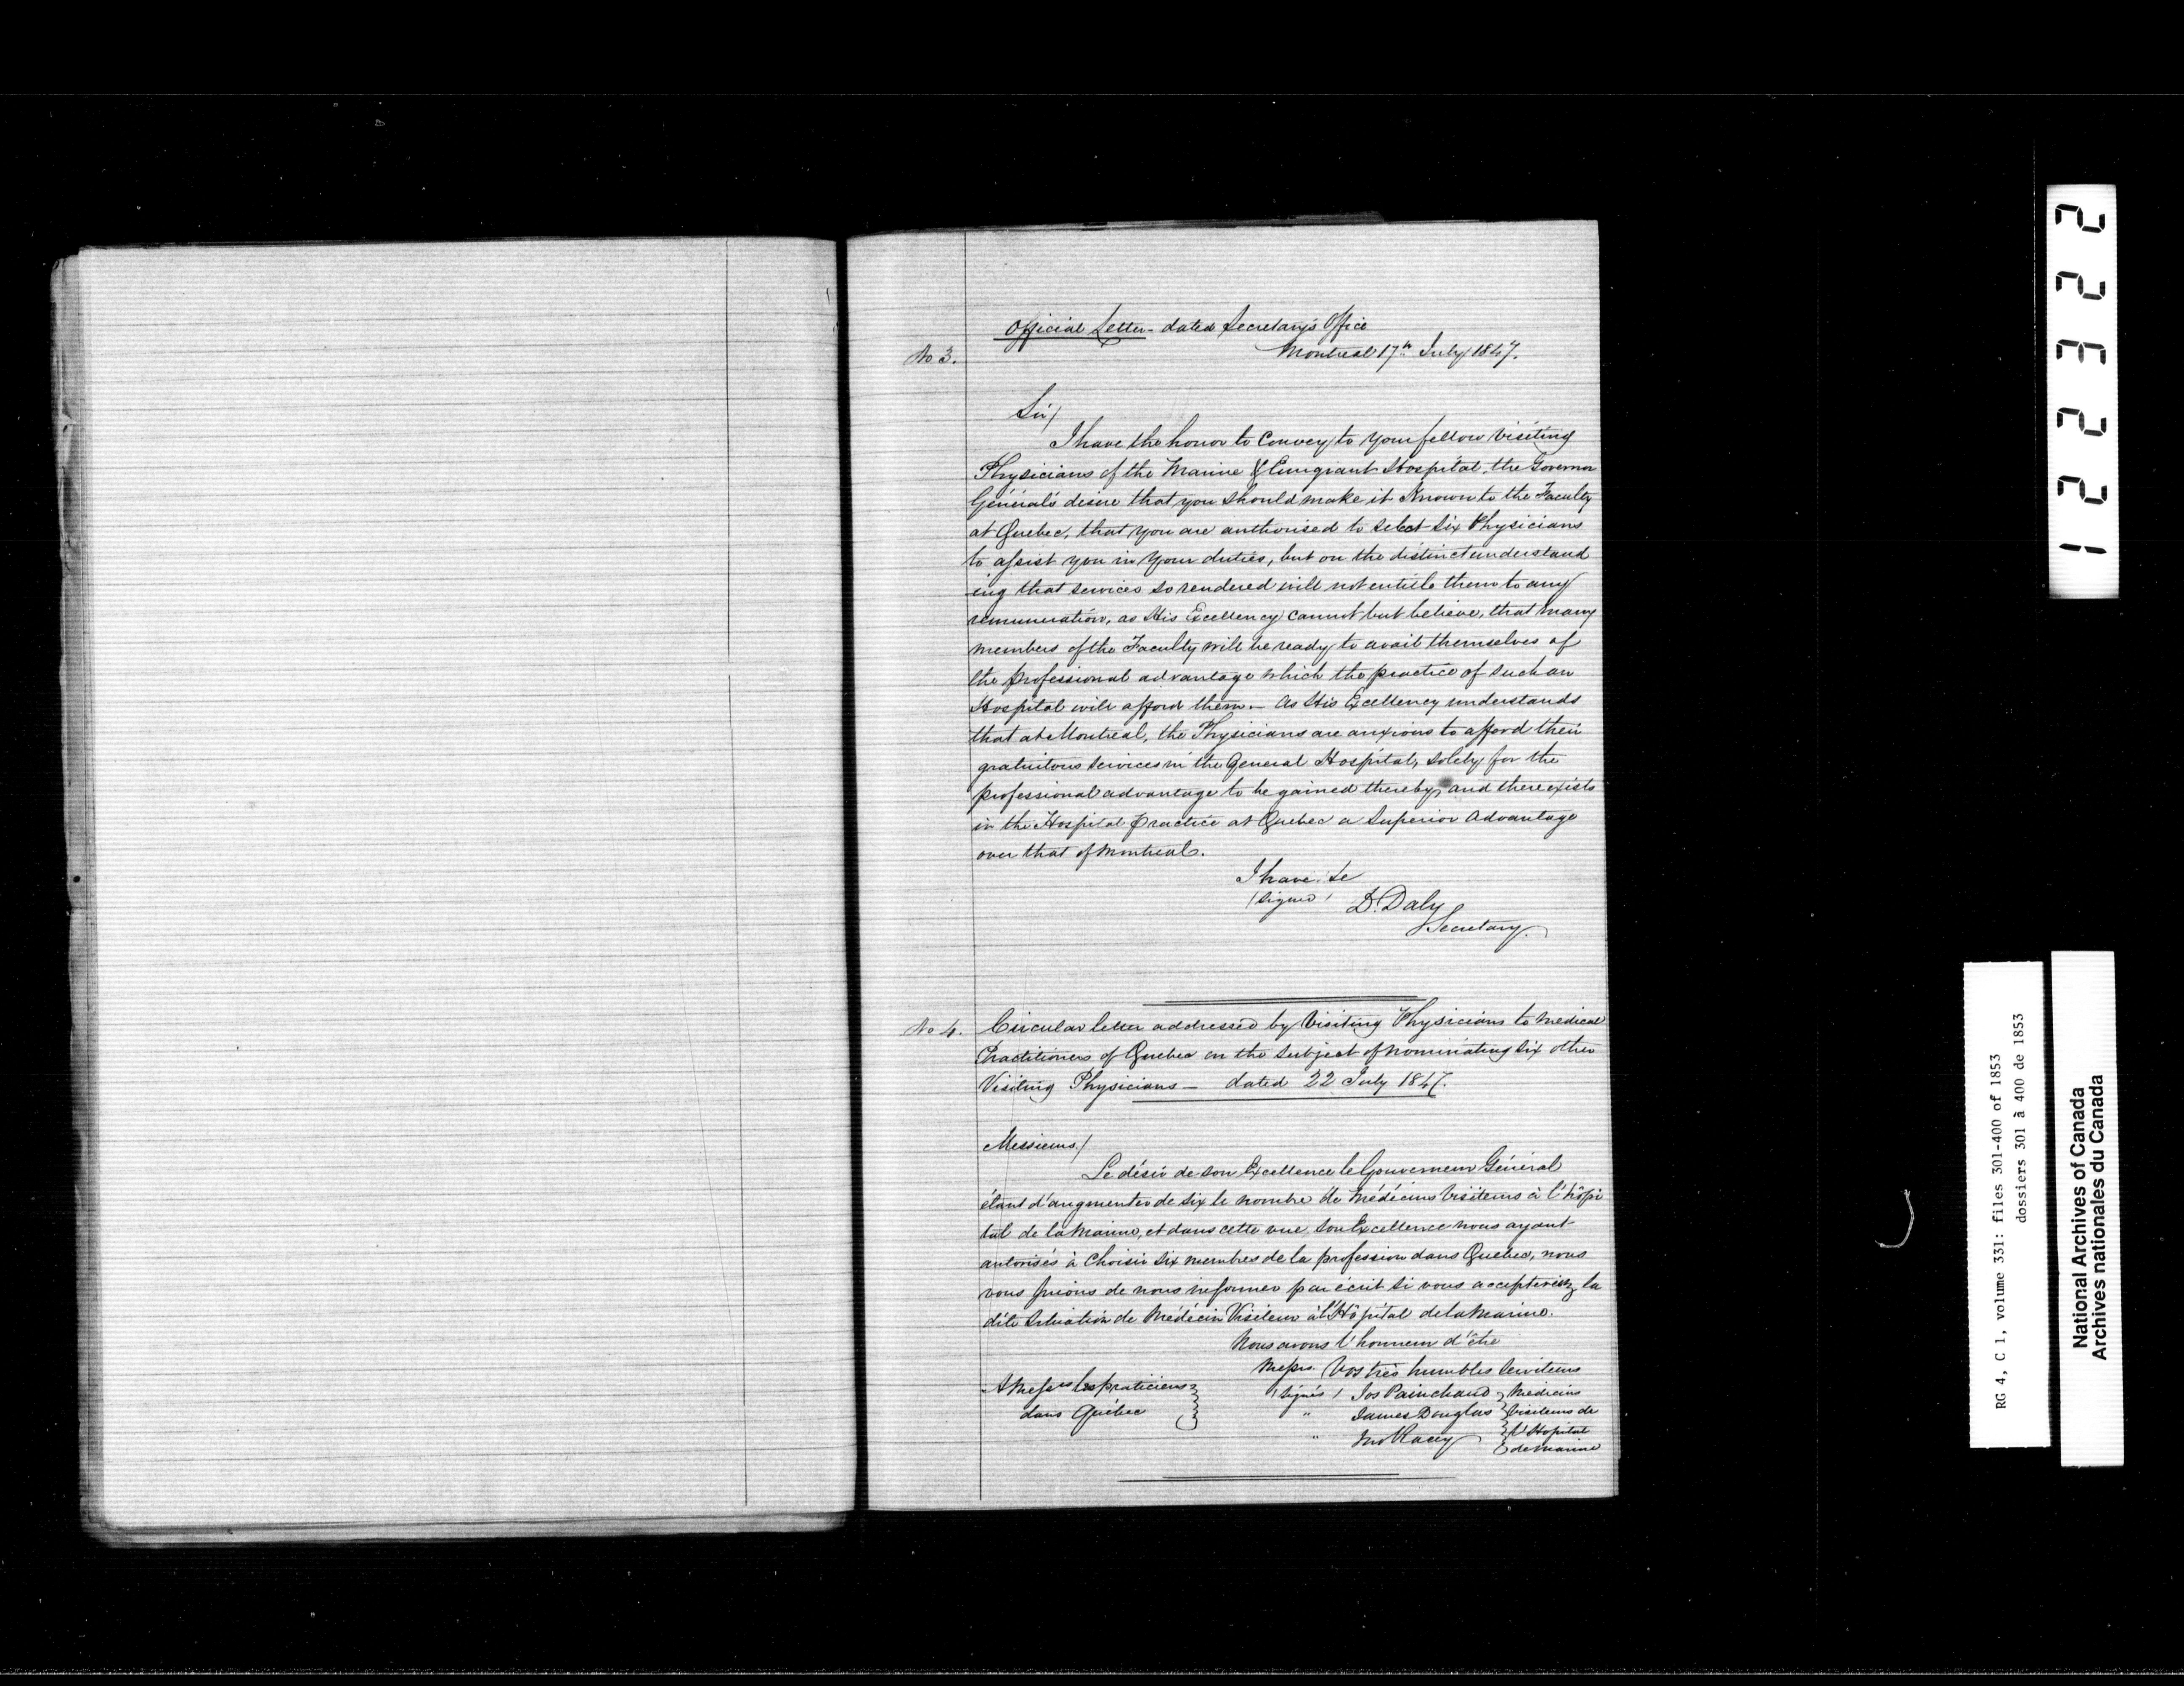 Official Letter - dated Secretary's Office
No 3.
Montreal 17th July 1847.
Sir/
I have the honor to Convey to your fellow Visiting
Physicians of the Marine & Emigrant Hospital, the Governor
Général's desire that you should make it Known to the Faculty
at Quebec, that you are authorised to select Six Physicians
to assist you in your duties, but on the distinct understand
ing that services so rendered will not entitle them to any
remuneration, as His Excellency cannot but believe, that many
members of the Faculty will be ready to avail themselves of
the professional advantage which the practice of such an
Hospital will afford them. - As His Excellency understands
that at Montreal, the Physicians are anxious to afford their
gratuitous services in the General Hospital, solely for the
professional advantage to be gained thereby, and there exists
in the Hospital Practice at Quebec a Superior Advantage
over that of Montreal.
I have &c
(signed) D. Daly
Secretary.
No 4.
Circular letter addressed by Visiting Physicians to Medical
Practitioners of Quebec on the Subject of nominating Six other
Visiting Physicians - dated 22 July 1847.
Messieurs/
Le désir de son Excellence le Gouverneur Général
étant d'augmenter de six le nombre de Médécins Visiteurs à l'hôpi
tal de la Marine, et dans cette vue, son Excellence nous ayant
autorisés à Choisir Six membres de la profession dans Quebec, nous
vous prions de nous informer par écrit si vous accepteriez la
dite Situation de Médécin Visiteur à l'Hôpital de la Marine.
Nous avons l'honneur d'être
Messrs. Vos très humbles Serviteurs
A Messrs les praticiens
dans Québec
(signés) Jos Painchaud
" James Douglas
" Jno Racey
Medecins
Visiteurs de
l'Hopital
de Marine
12232
RG 4, C 1, volume 331: files 301-400 of 1853
dossiers 301 à 400 de 1853
National Archives of Canada
Archives nationales du Canada